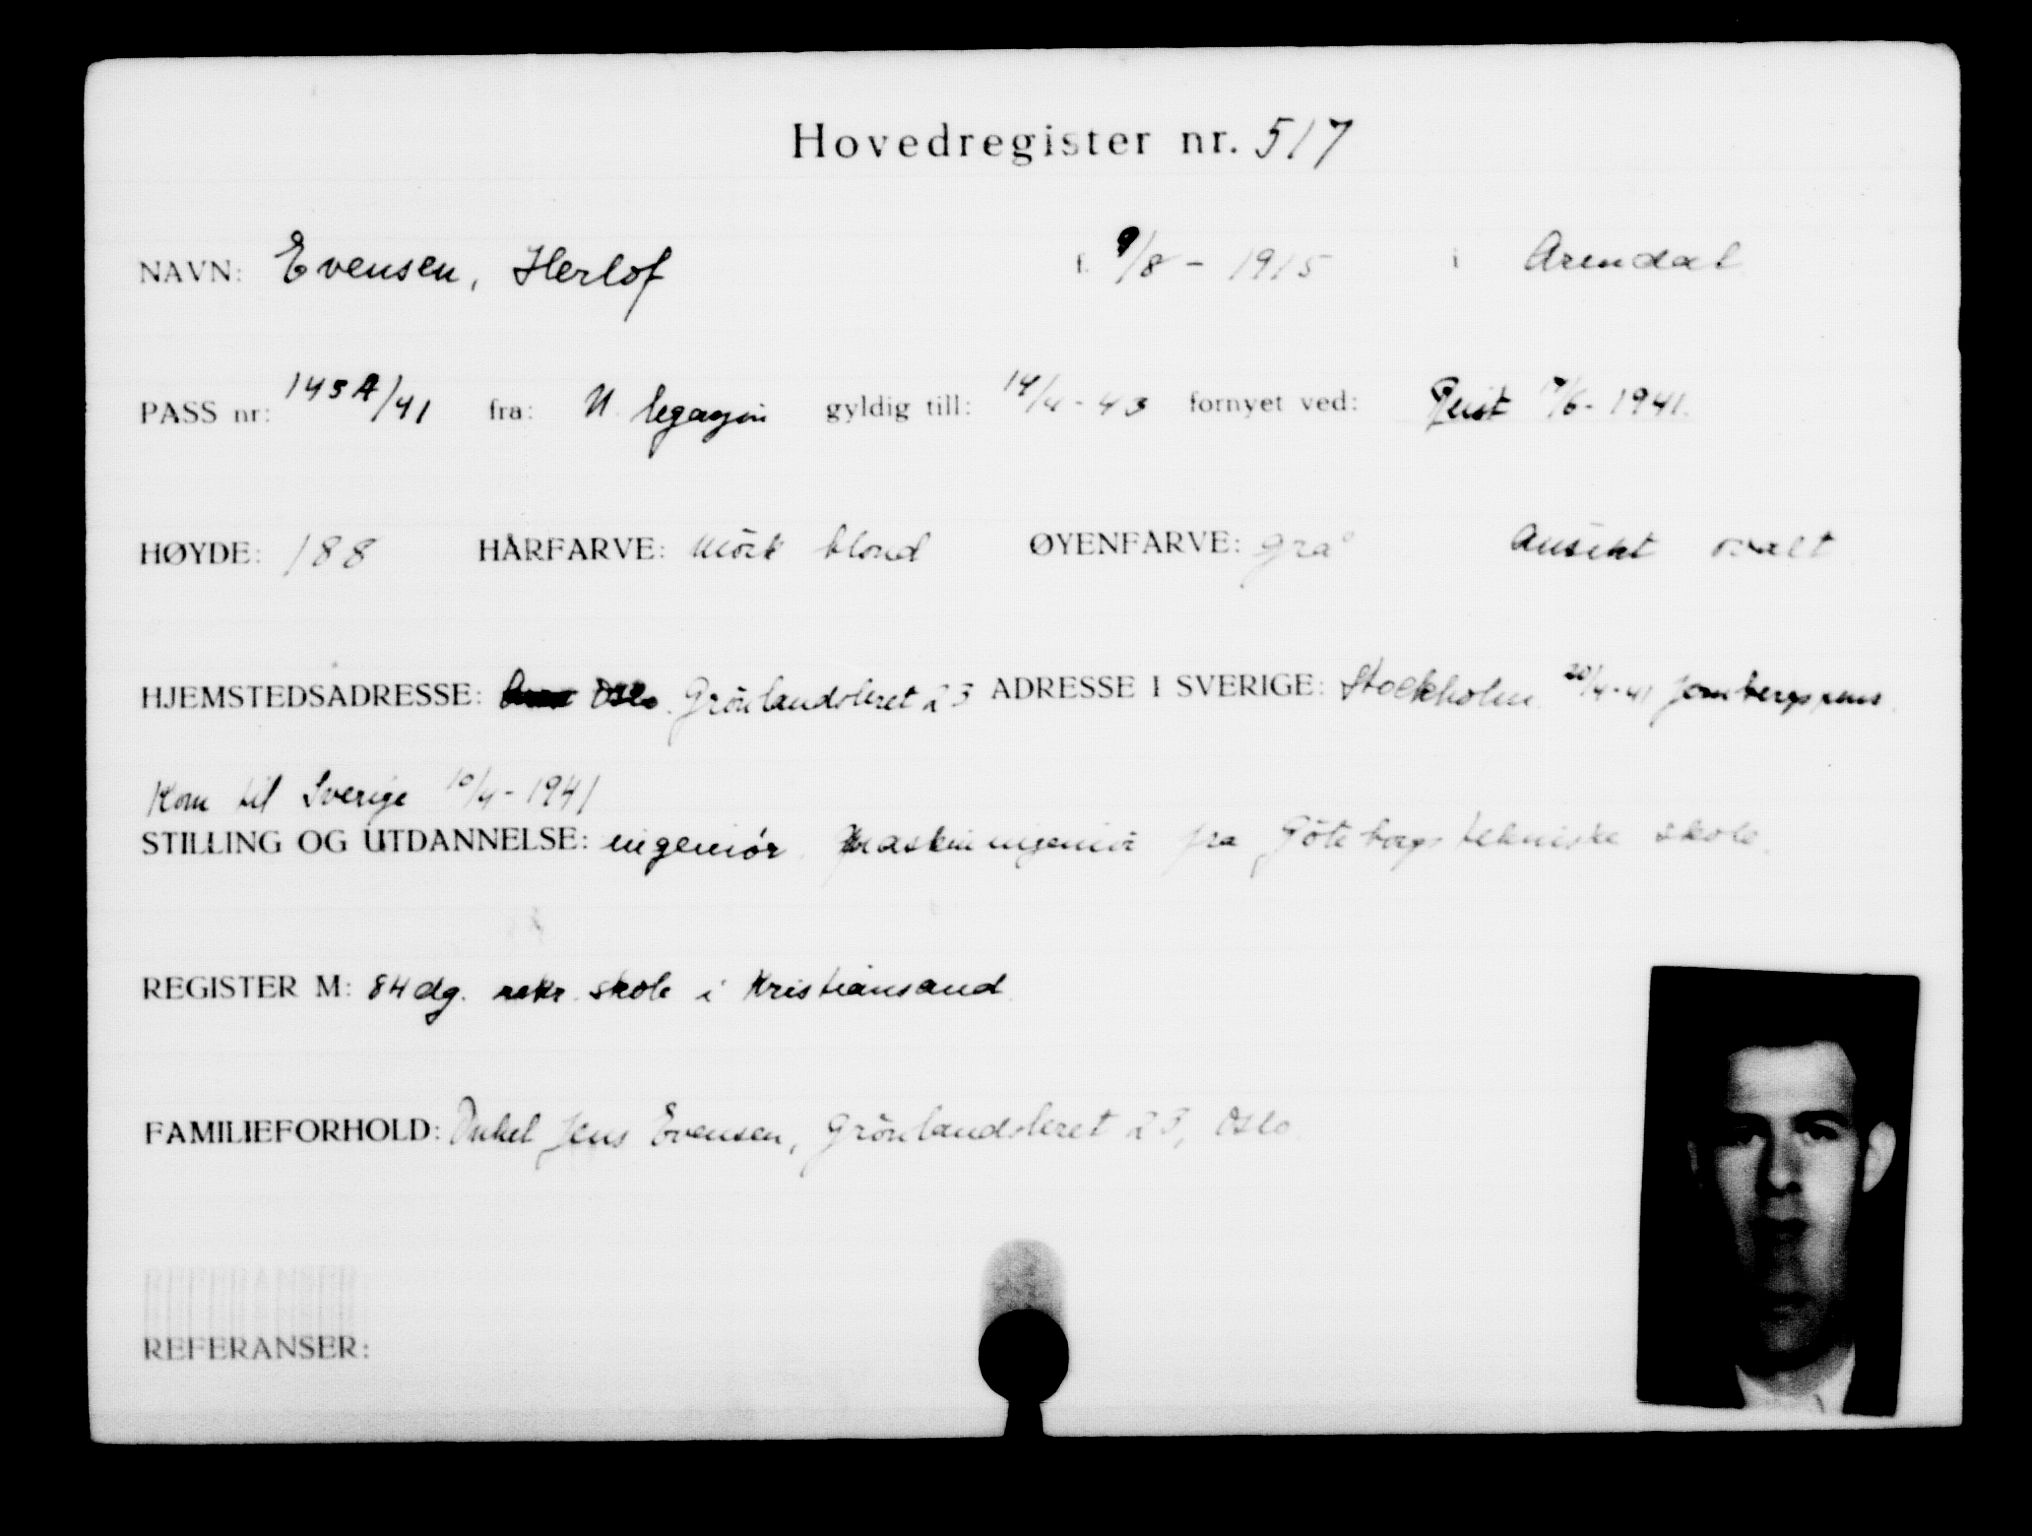 Hovedregister nr. 517
NAVN: Evensen, Herlof f. 9/8 - 1915 i Arendal
PASS nr: 145A/41 fra: N. legasjon gyldig till: 14/4 - 43 fornyet ved: Reist /6 - 1941.
HØYDE: 188 HÅRFARVE: mörk blond ØYENFARVE: grå Ansikt ovalt
HJEMSTEDSADRESSE: Oslo. Grönlandsleret 23 ADRESSE I SVERIGE: Stockholm 20/4-41
Kom til Sverige 10/4 - 1941
STILLING OG UTDANNELSE: ingeniör. Maskiningeniör fra Göteborgs tekniske skole.
REGISTER M: 84 dg. rekr. skole i Kristiansand
FAMILIEFORHOLD: Onkel Jens Evensen, Grönlandsleret 23, Oslo.
REFERANSER: